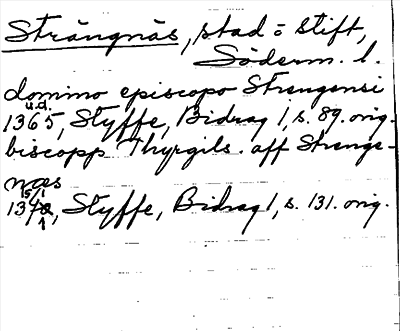 Strängnäs, stad o stift,
Söderm. l.
domino episcopo Strengensi
u.d.
1365, Styffe, Bidrag 1, s. 89. orig.
biscopp Thyrgils. aff Strenge-
næs
15/1
1371, Styffe, Bidrag 1, s. 131. orig.